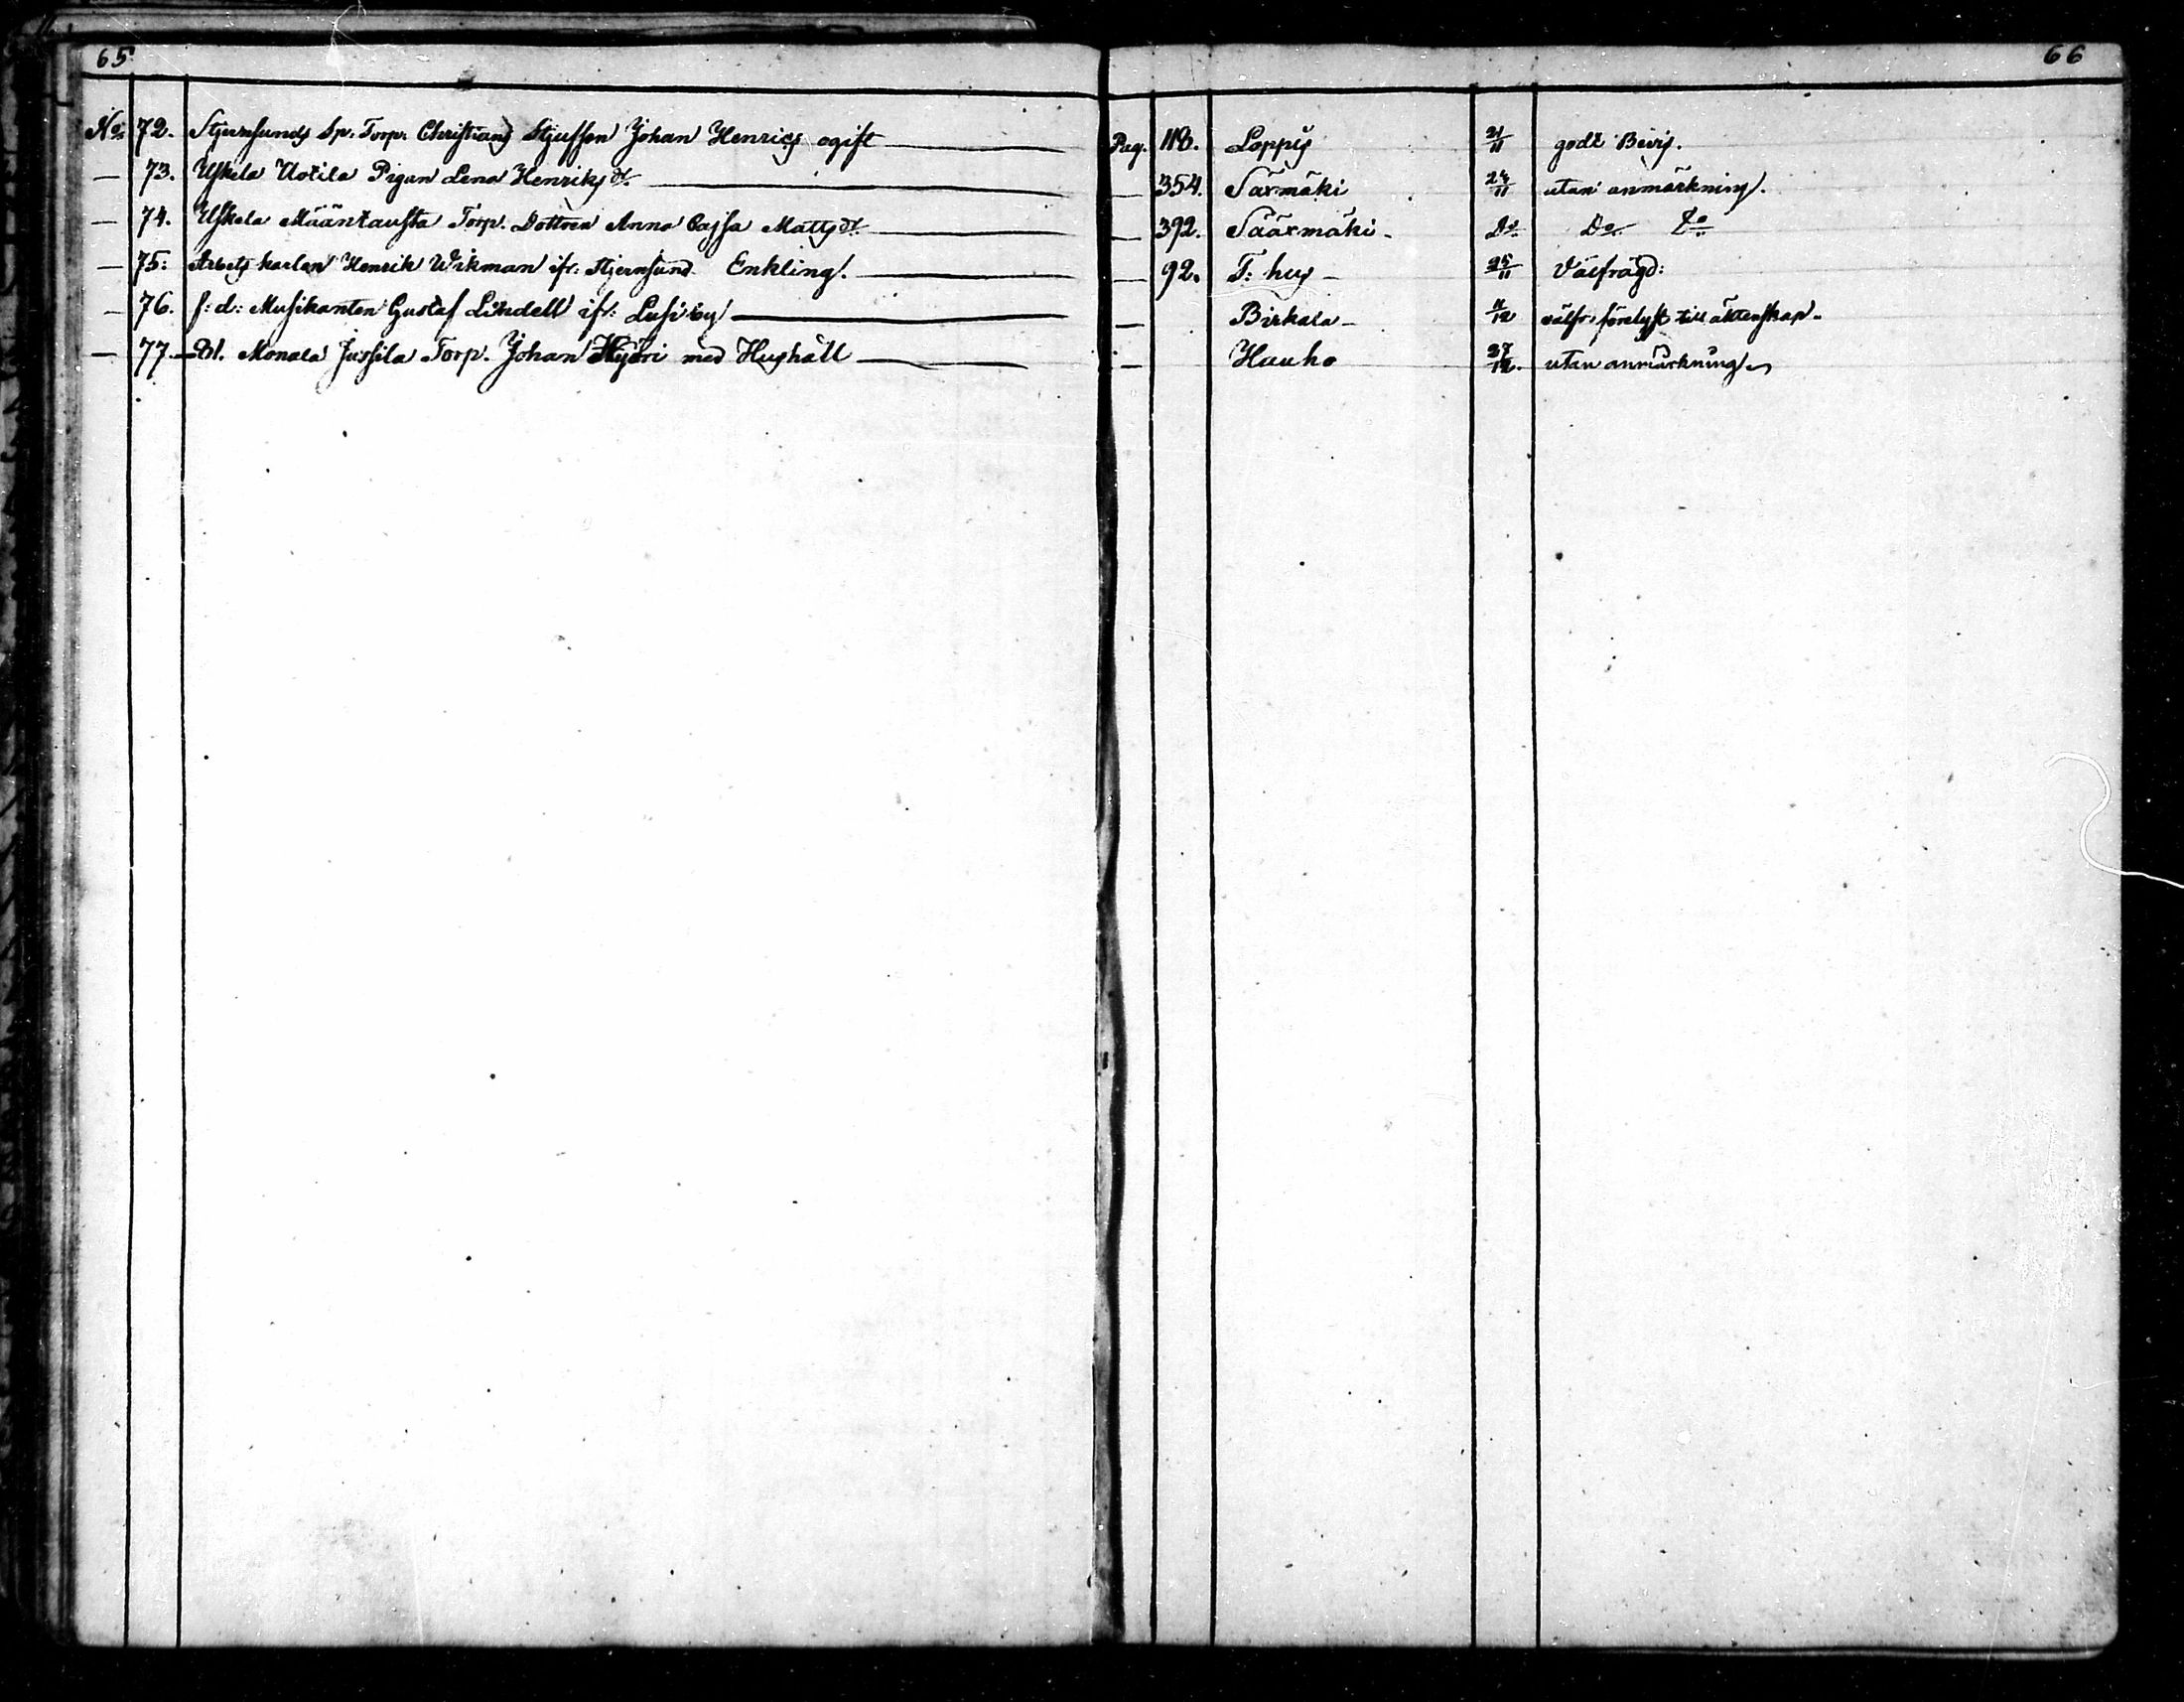 65
66
No 72. Stjernsunds Sp. Torp. Christians Stjufson Johan Henrics ogift Pag. 118. Loppis 21/11 godt Bevis.
— 73. Uskela Uotila Pigan Lena Henriksdr. — 354. Säxmäki 24/11 utan anmärkning.
— 74. Uskela Määntausta Torp. Dottren Anna Cajsa Mattsdr. — 392. Sääxmäki — Do Do Do
— 75: Arbets karlen Henrik Wikman ifr: Stjernsund Enkling. — 92. T: hus — 25/11 Välfrägd:
— 76. f: d: Musikanten Gustaf Lindell ifr: Lusi by — Birkala — 11/12 välfr: förelyst till äktenskap.
— 77. Monala Jussila Torp. Johan med Hushåll — Hauho 27/12. utan anmärkning